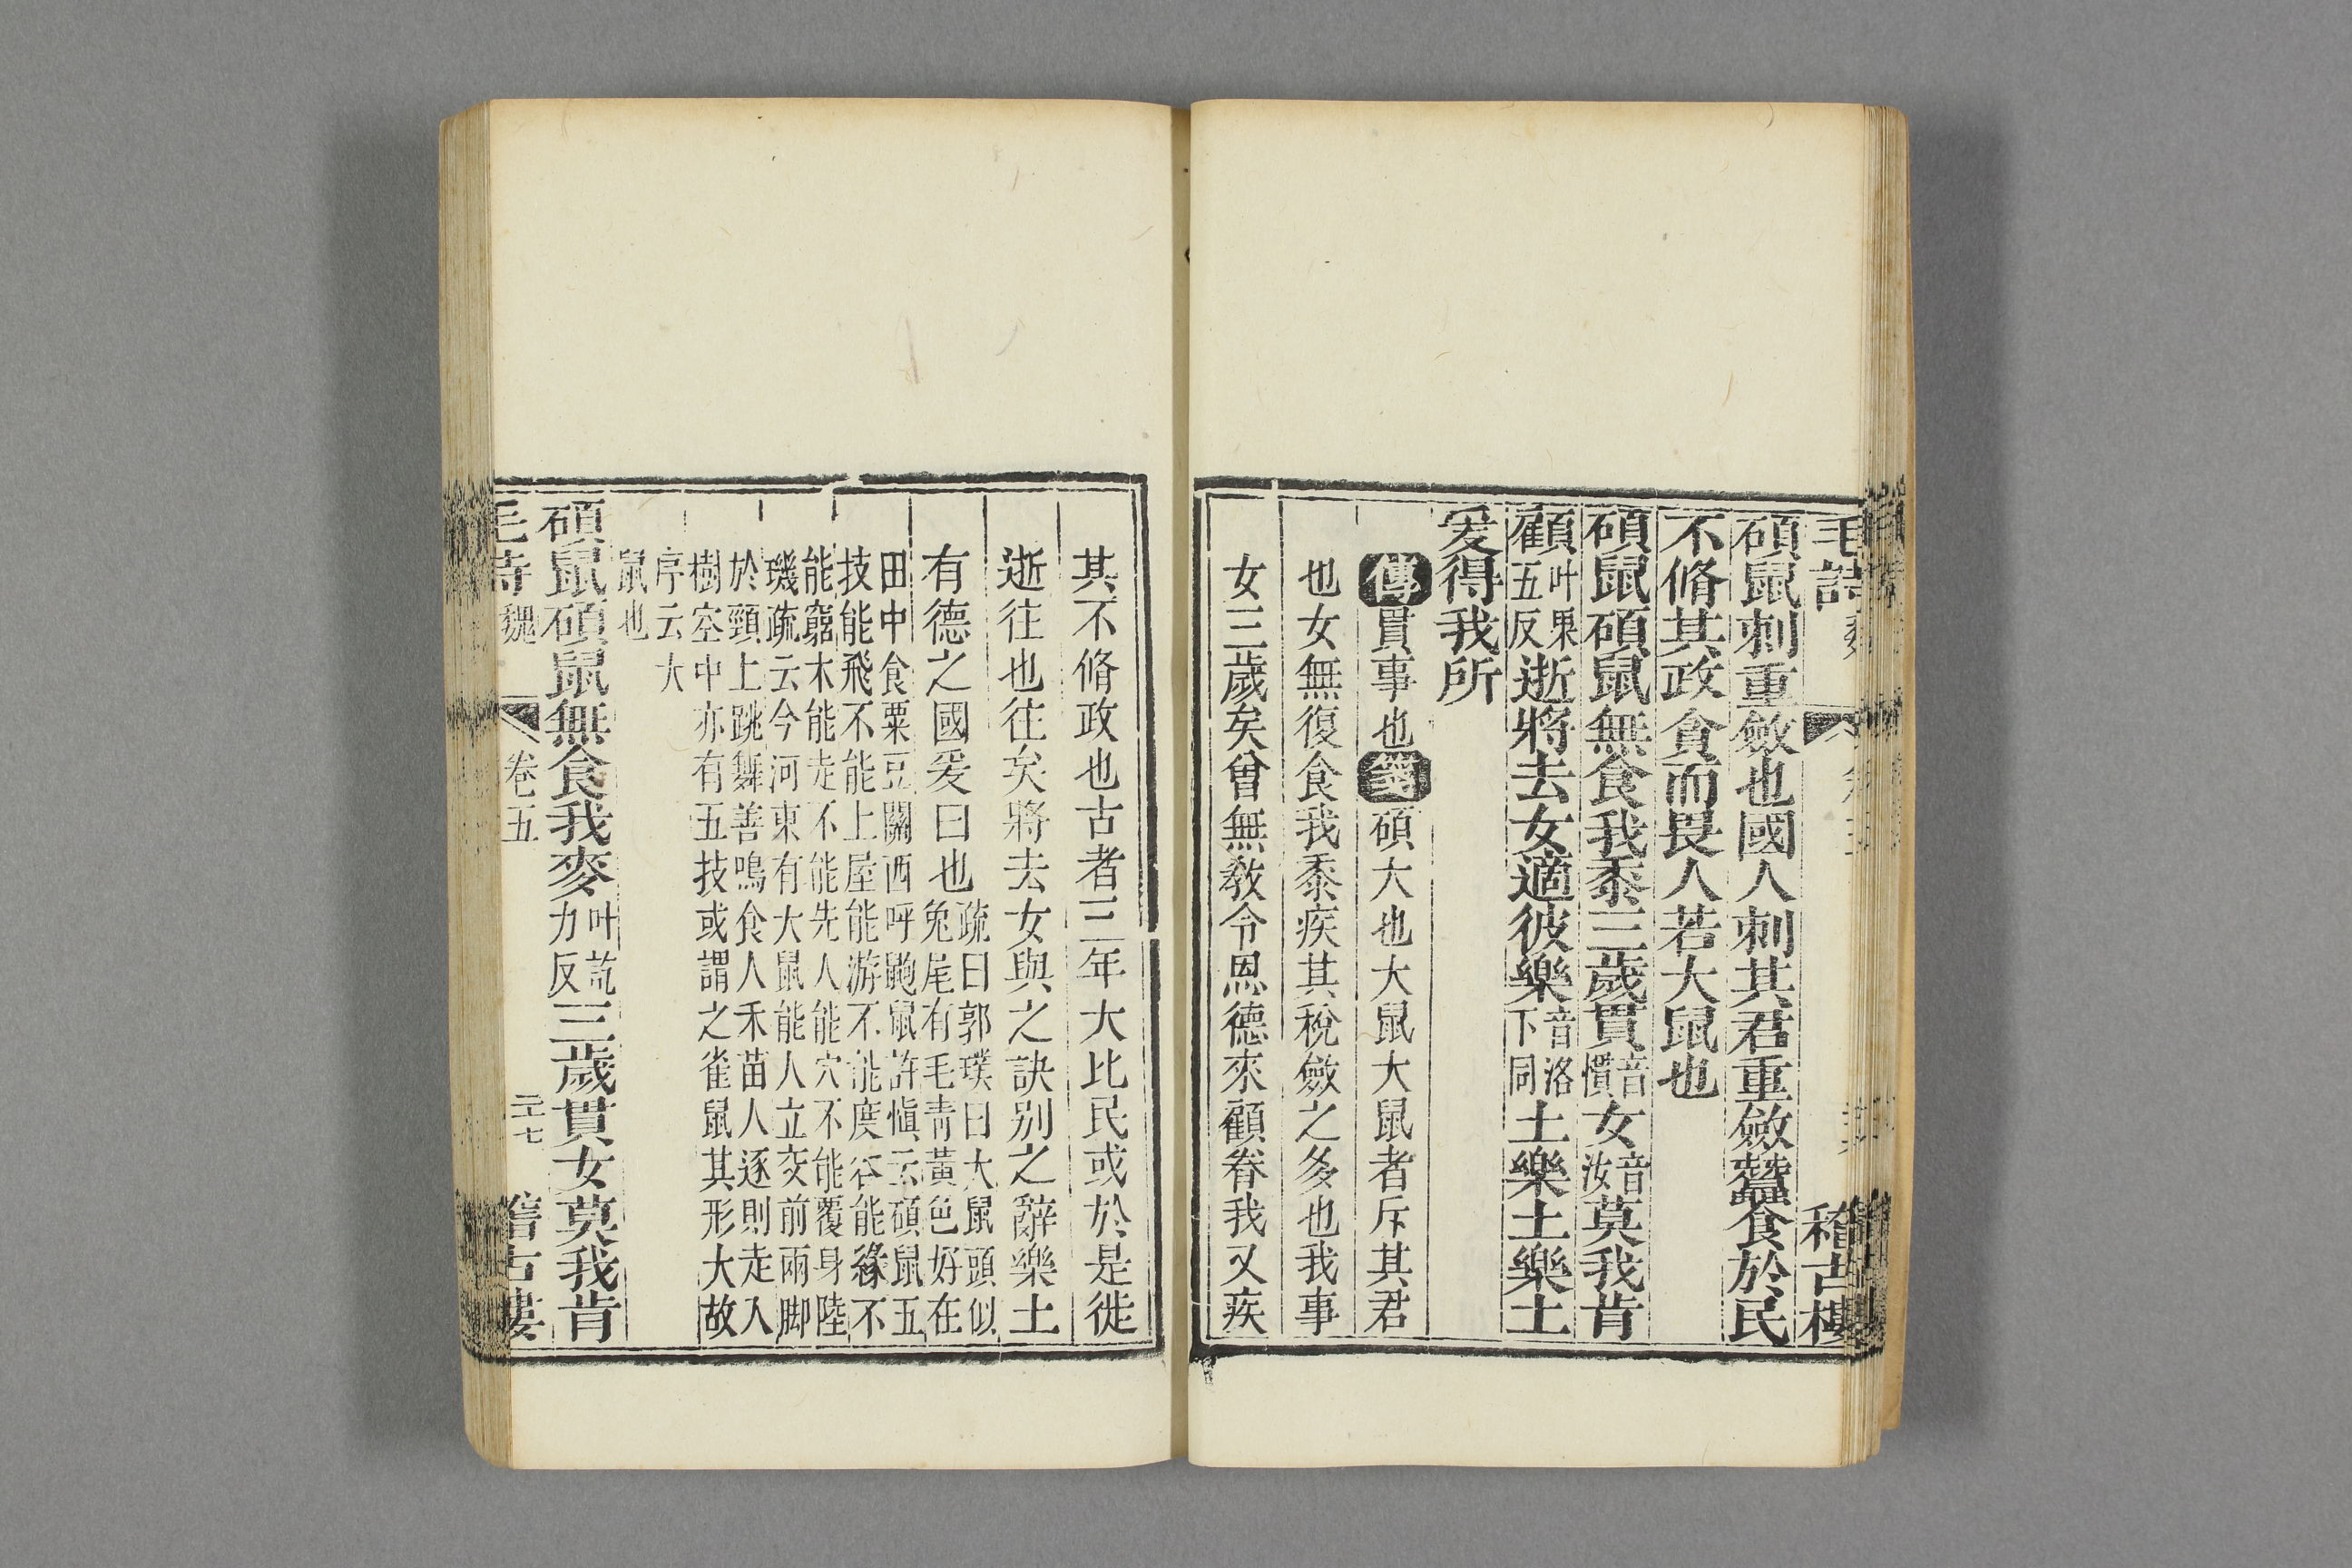 毛詩
稽古樓
碩鼠刺重斂也國人刺其君重斂蠶食於民
不脩其政貪而畏人若大鼠也
碩鼠碩鼠無食我黍三歲貫音慣女音汝莫我肯
顧叶果五反逝將去女適彼樂音洛下同土樂土樂土
爰得我所
傳貫事也箋碩大也大鼠大鼠者斥其君
也女無復食我黍疾其稅斂之多也我事
女三歲矣曾無教令恩德來顧眷我又疾
其不脩政也古者三年大比民或於是徙
逝往也往矣將去女與之訣别之辭樂土
有德之國爰曰也疏曰郭璞曰大鼠頭似
兔尾有毛青黃色好在
田中食粟豆關西呼鼩鼠許愼云碩鼠五
技能飛不能上屋能游不能度谷能緣不
能窮木能走不能先人能穴不能覆身陸
璣疏云今河東有大鼠能人立交前兩脚
於頸上跳舞善鳴食人禾苗人逐則走入
樹空中亦有五技或謂之雀鼠其形大故
序云大
鼠也
碩鼠碩鼠無食我麥叶訖力反三歲貫女莫我肯
毛詩 魏 卷五 二十七 稽古樓